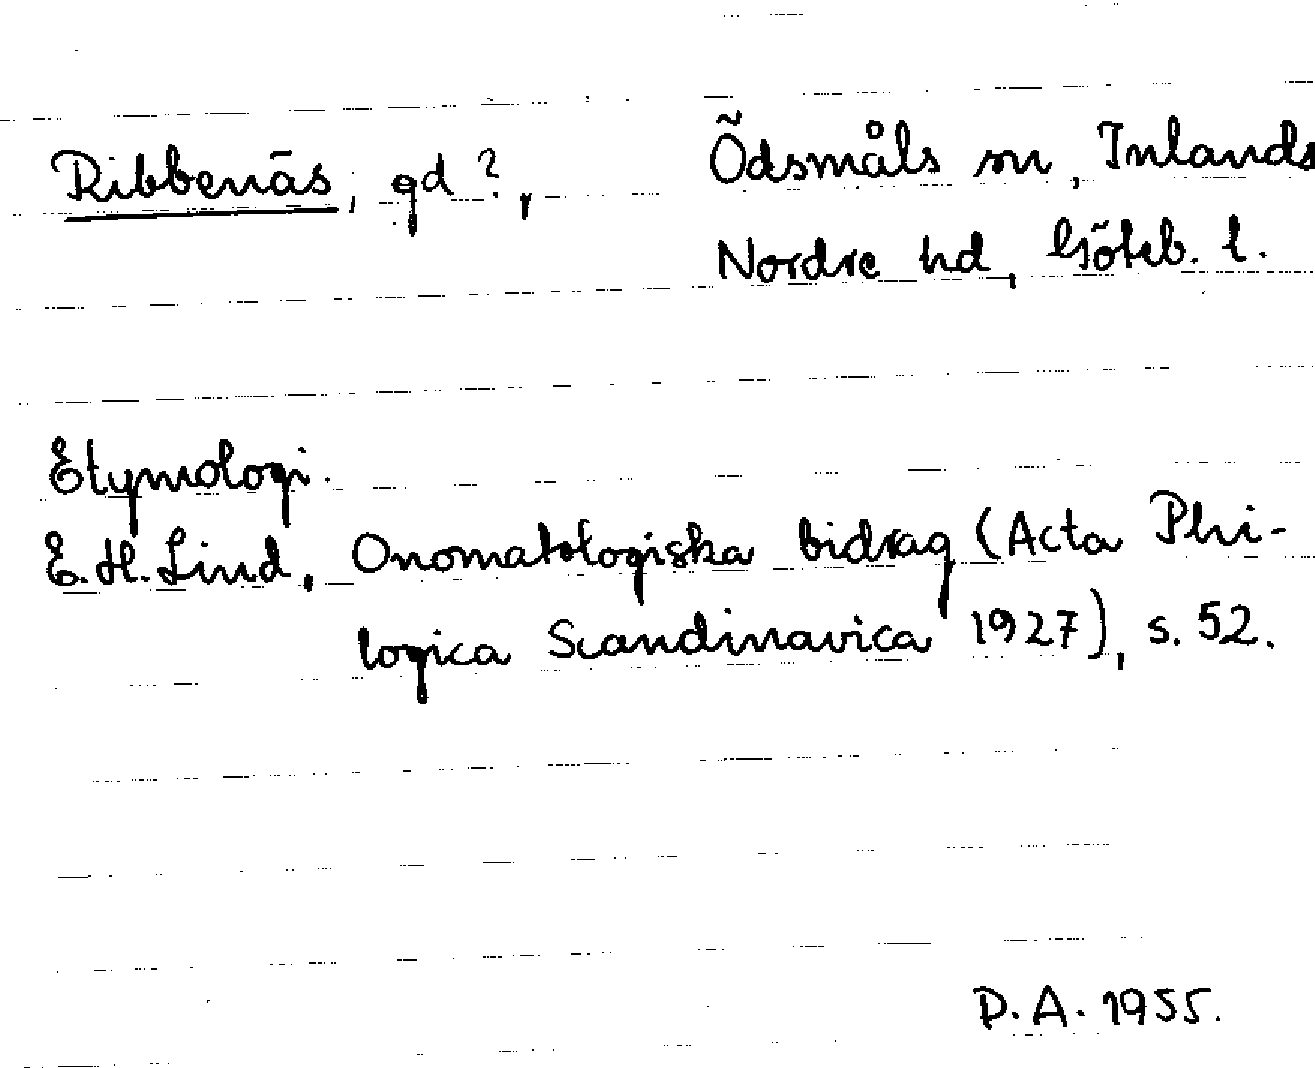 Ribbenäs, gd?, Ödsmåls sn, Inlands
Nordre hd, Göteb. l.
Etymologi.
E.H. Lind, Onomatologiska bidrag (Acta Phi-
logica Scandinavica 1927), s. 52.
P.A. 1955.